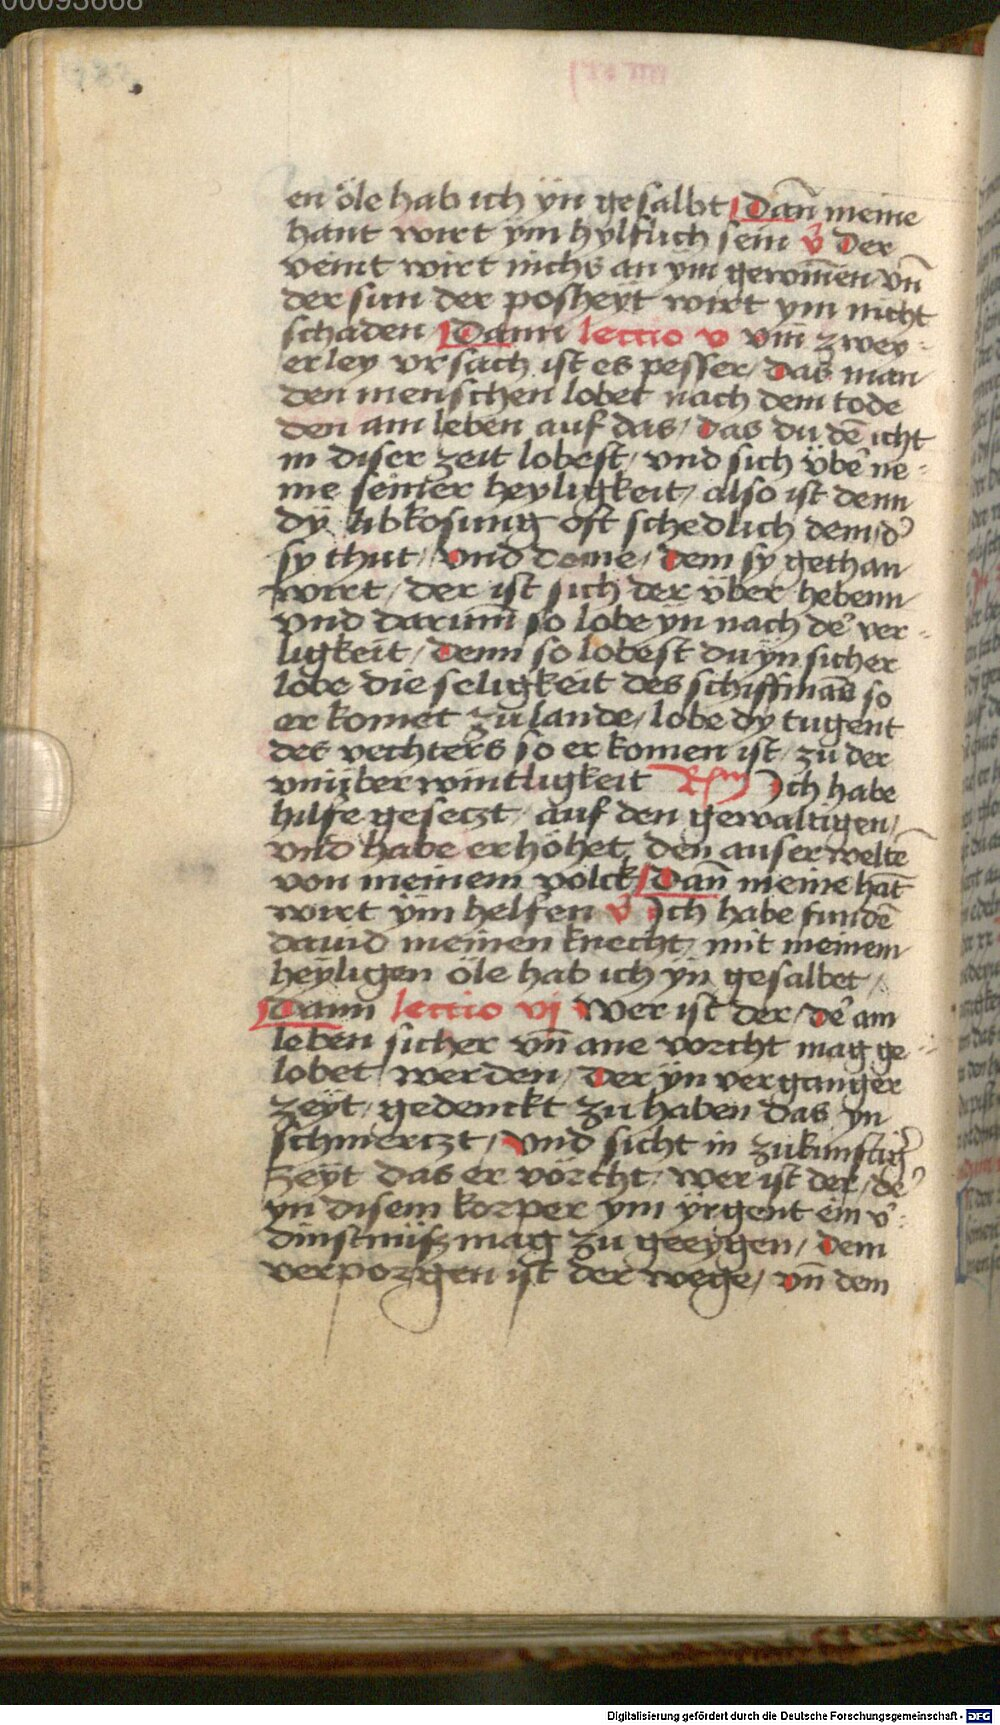 00093668
en öle hab ich ÿn gesalbt Dañ meine
hant wirt ÿm hylflich sein v̾ Der
veint wirt nichs an ÿm gewiñen vñ
der sun der posheÿt wirt ym nicht
schaden / Dann lectio v vm zwey-
erley vrsach ist es pesser / das man
den menschen lobet nach dem tode
den am leben auf das / das du dē icht
in diser zeit lobest / vnd sich übe᷑ ne-
me seiner heyligkeit / also ist denn
dÿ libkosung oft schedlich dem / d᷑
sy thut / vnd deme / dem sy gethan
wirt / der ist sich der über hebenn
vnd darum̄ so lobe ÿn nach de᷑ ver-
ligkeit / denn so lobest du ÿn sicher
lobe die seligkeit des schiffmās so
er komet zu lande / lobe dy tugent
des vechters so er komen ist / zu der
vnüberwintligkeit Rm̄ Ich habe
hilfe gesetzt / auf den gewaltigen /
vnd habe erhöhet den auserweltē
von meinem volck / Dañ meine hāt
wirt ÿm helfen v̾ Ich habe fundē
dauid meinen knecht / mit meinem
heÿligen öle hab ich yn gesalbet /
Dann lectio vj Wer ist der / de᷑ am
leben sicher vñ ane vorcht mag ge-
lobet werden / der ÿn verganger
zeÿt / gedenckt zu haben das yn
schmertzt / vnd sicht in zukunftig᷑
zeÿt das er vörcht / wer ist der / de᷑
yn disem korper ym ÿrgent ein v᷑-
dinstnüß mag zu geeÿgen / dem
verporgen ist der wege / vñ dem
Digitalisierung gefördert durch die Deutsche Forschungsgemeinschaft - DFG